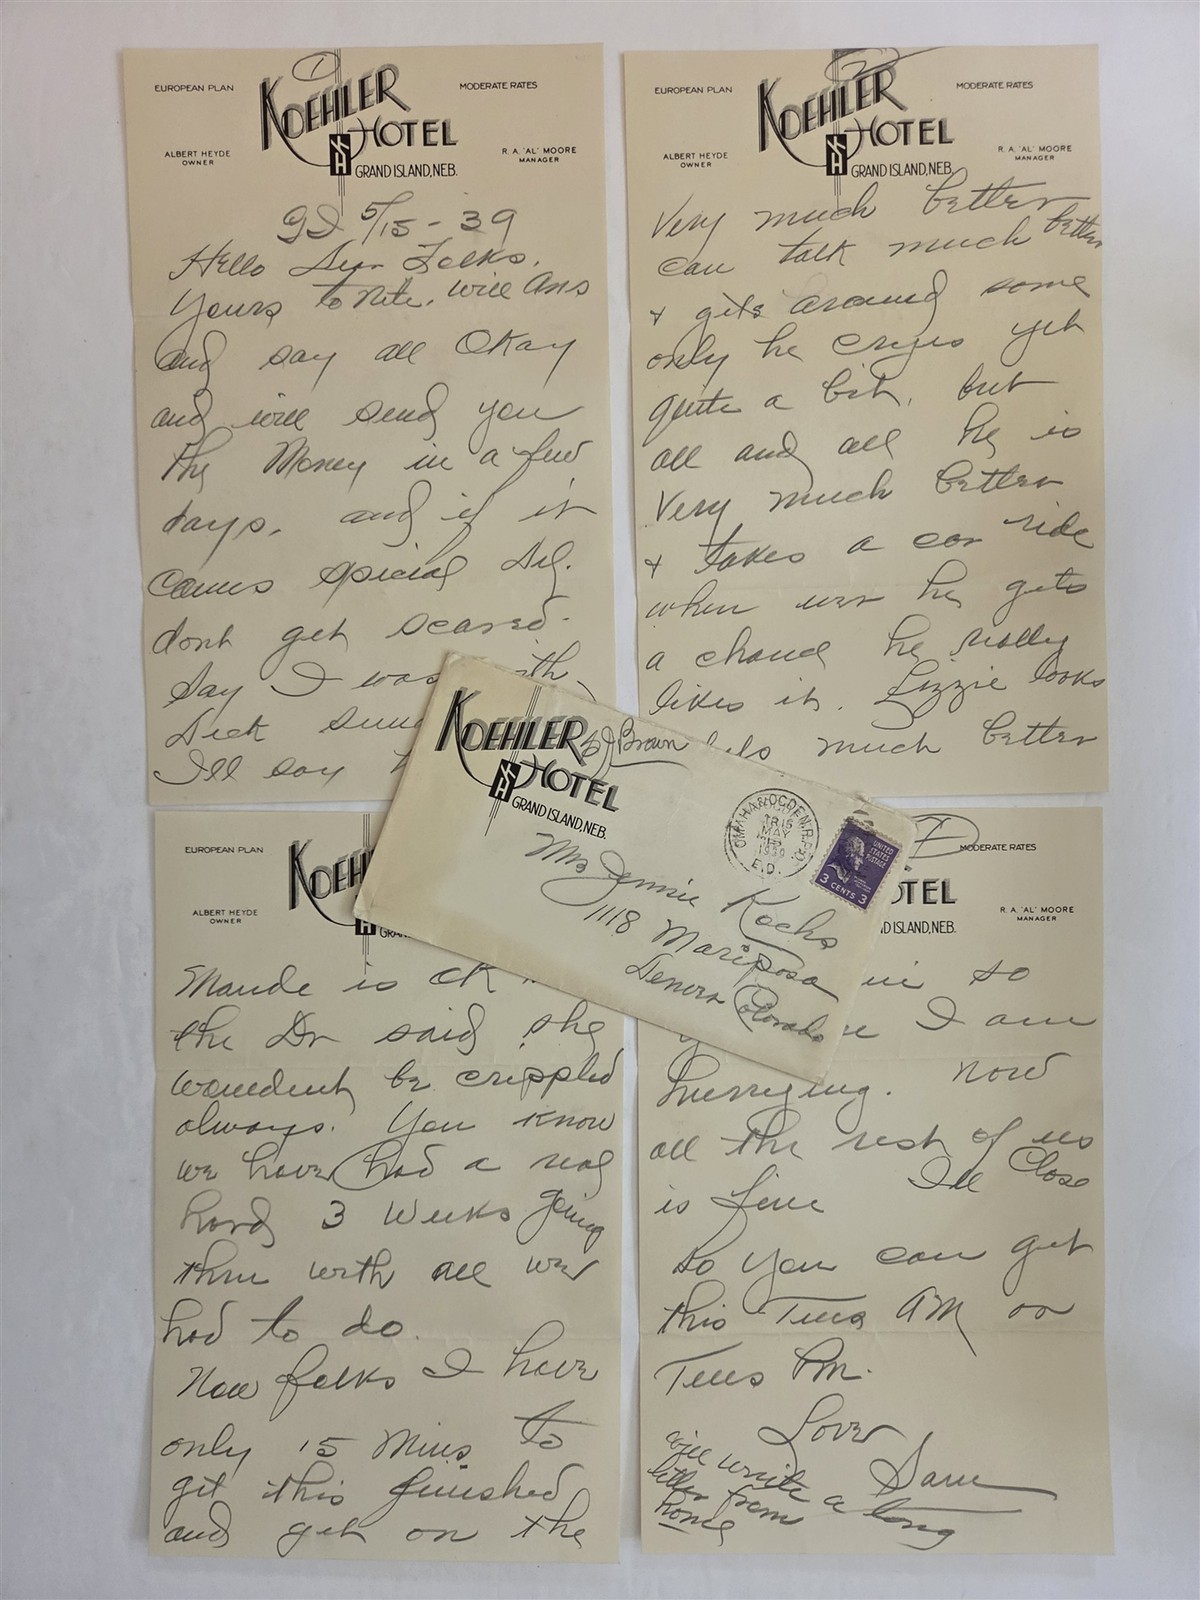 EUROPEAN PLAN
MODERATE RATES
KOEHLER
HOTEL
ALBERT HEYDE
OWNER
R. A. "AL" MOORE
MANAGER
GRAND ISLAND, NEB.
GI 5/15-39
Hello Folks.
Yours to Nite. Will Ans
and say all Okay
and will send you
the Money in a few
days. and if it
comes special Del.
dont get scared.
Say I was
Dick
I'll say
EUROPEAN PLAN
MODERATE RATES
KOEHLER
HOTEL
ALBERT HEYDE
OWNER
R. A. "AL" MOORE
MANAGER
GRAND ISLAND, NEB.
Very much better
can talk much better
& gets around some
only he crys yet
quite a bit, but
all and all he is
Very much better
& takes a car ride
when ever he gets
a chance he really
likes it. Lizzie looks
much better
KOEHLER
HOTEL
GRAND ISLAND, NEB.
Brown
OMAHA & OGDEN R.P.O.
TR 16
MAY
1939
E.D.
UNITED
STATES
POSTAGE
3 CENTS 3
Mrs Jennie Kochs
1118 Mariposa
Denver Colorado
EUROPEAN PLAN
ALBERT HEYDE
OWNER
KOEH
GRA
Maude is OK
the Dr said she
wouldent be crippled
always. You know
we have had a real
hard 3 Weeks going
thru with all we
had to do.
Now folks I have
only 15 Mins to
get this finished
and get on the
MODERATE RATES
OTEL
R. A. "AL" MOORE
MANAGER
D ISLAND, NEB.
so
I am
hurrying. now
all the rest of us
is fine I'll Close
so you can get
this Tues AM or
Tues PM.
Love
Sam
will write a long
letter from
home